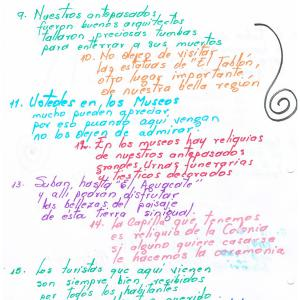 9. Nuestros antepasados
fueron buenos arquitectos
tallaron preciosas tumbas
para enterrar a sus muertos
10. No dejen de visitar
las estatuas de "El Tablón,
otro lugar importante
de nuestra bella región
11. Ustedes en los Museos
mucho pueden apreciar
por eso cuando aquí vengan
no los dejen de admirar.
12. En los museos hay reliquias
de nuestros antepasados
grandes Urnas funerarias
y tiestos decorados
13. Suban hasta "El Aguacate"
y allí podrán disfrutar
las bellezas del paisaje
de esta tierra sin igual.
14. La Capilla que tenemos
es reliquia de la Colonia
si alguno quiere casarse
le hacemos la ceremonia
15. Los turistas que aquí vienen
son siempre bien recibidos
por todos los habitantes